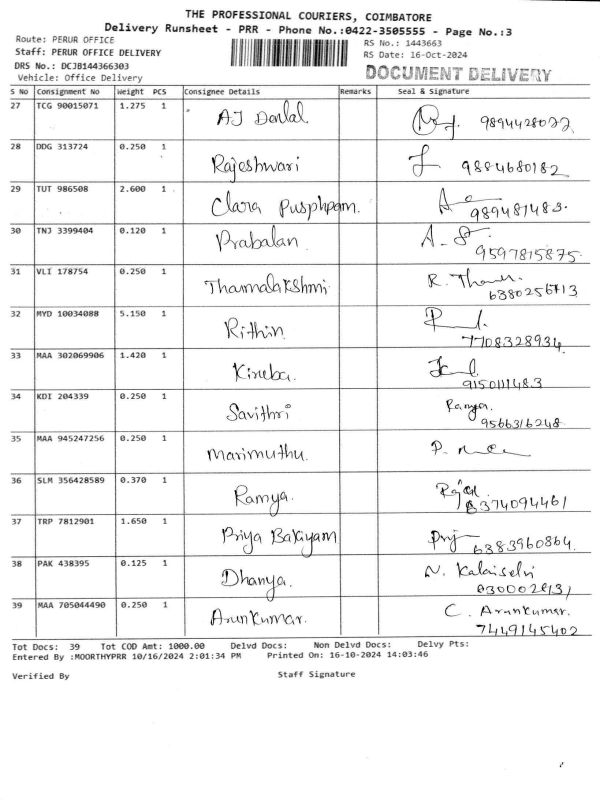 THE PROFESSIONAL COURIERS, COIMBATORE
Delivery Runsheet - PRR - Phone No.:0422-3505555 - Page No.:3
Route: PERUR OFFICE RS No.: 1443663
Staff: PERUR OFFICE DELIVERY RS Date: 16-Oct-2024
DRS No.: DCJB144366303 DOCUMENT DELIVERY
Vehicle: Office Delivery
S No Consignment No Weight PCS Consignee Details Remarks Seal & Signature
27 TCG 90015071 1.275 1 AJ
28 DDG 313724 0.250 1 Rajeshwari 9884680182
29 TUT 986508 2.600 1 Clara Pusphpam. 989481483.
30 TNJ 3399404 0.120 1 Prabalan 9597815875
31 VLI 178754 0.250 1 Thannalakshmi R.
32 MYD 10034088 5.150 1 Rithin 7708328934
33 MAA 302069906 1.420 1 Kireba. 9150111483
34 KDI 204339 0.250 1 Savithri Ramya. 9566316248
35 MAA 945247256 0.250 1 Marimuthu. P.
36 SLM 356428589 0.370 1 Ramya. 6374094461
37 TRP 7812901 1.650 1 Priya Bakiyam 6383960864.
38 PAK 438395 0.125 1 Dhanya. N. Kalaiselvi
39 MAA 705044490 0.250 1 Arunkumar. C. Arunkumar. 7449145402
Tot Docs: 39 Tot COD Amt: 1000.00 Delvd Docs: Non Delvd Docs: Delvy Pts:
Entered By :MOORTHYPRR 10/16/2024 2:01:34 PM Printed On: 16-10-2024 14:03:46
Verified By Staff Signature